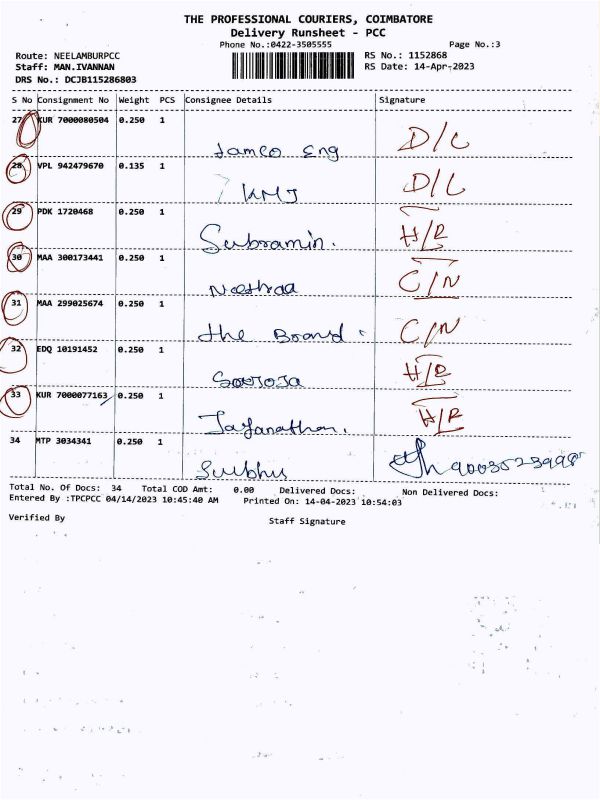 THE PROFESSIONAL COURIERS, COIMBATORE
Delivery Runsheet - PCC
Phone No.:0422-3505555 Page No.:3
Route: NEELAMBURPCC RS No.: 1152868
Staff: MAN.IVANNAN RS Date: 14-Apr-2023
DRS No.: DCJB115286803
S No Consignment No Weight PCS Consignee Details Signature
27 KUR 7000080504 0.250 1 Jameo Eng D/L
28 VPL 942479670 0.135 1 KMJ D/L
29 PDK 1720468 0.250 1 Subramin. H/R
30 MAA 300173441 0.250 1 C/N
31 MAA 299025674 0.250 1 the Brand C/N
32 EDQ 10191452 0.250 1 H/R
33 KUR 7000077163 0.250 1 H/R
34 MTP 3034341 0.250 1
Total No. Of Docs: 34 Total COD Amt: 0.00 Delivered Docs: Non Delivered Docs:
Entered By :TPCPCC 04/14/2023 10:45:40 AM Printed On: 14-04-2023 10:54:03
Verified By Staff Signature